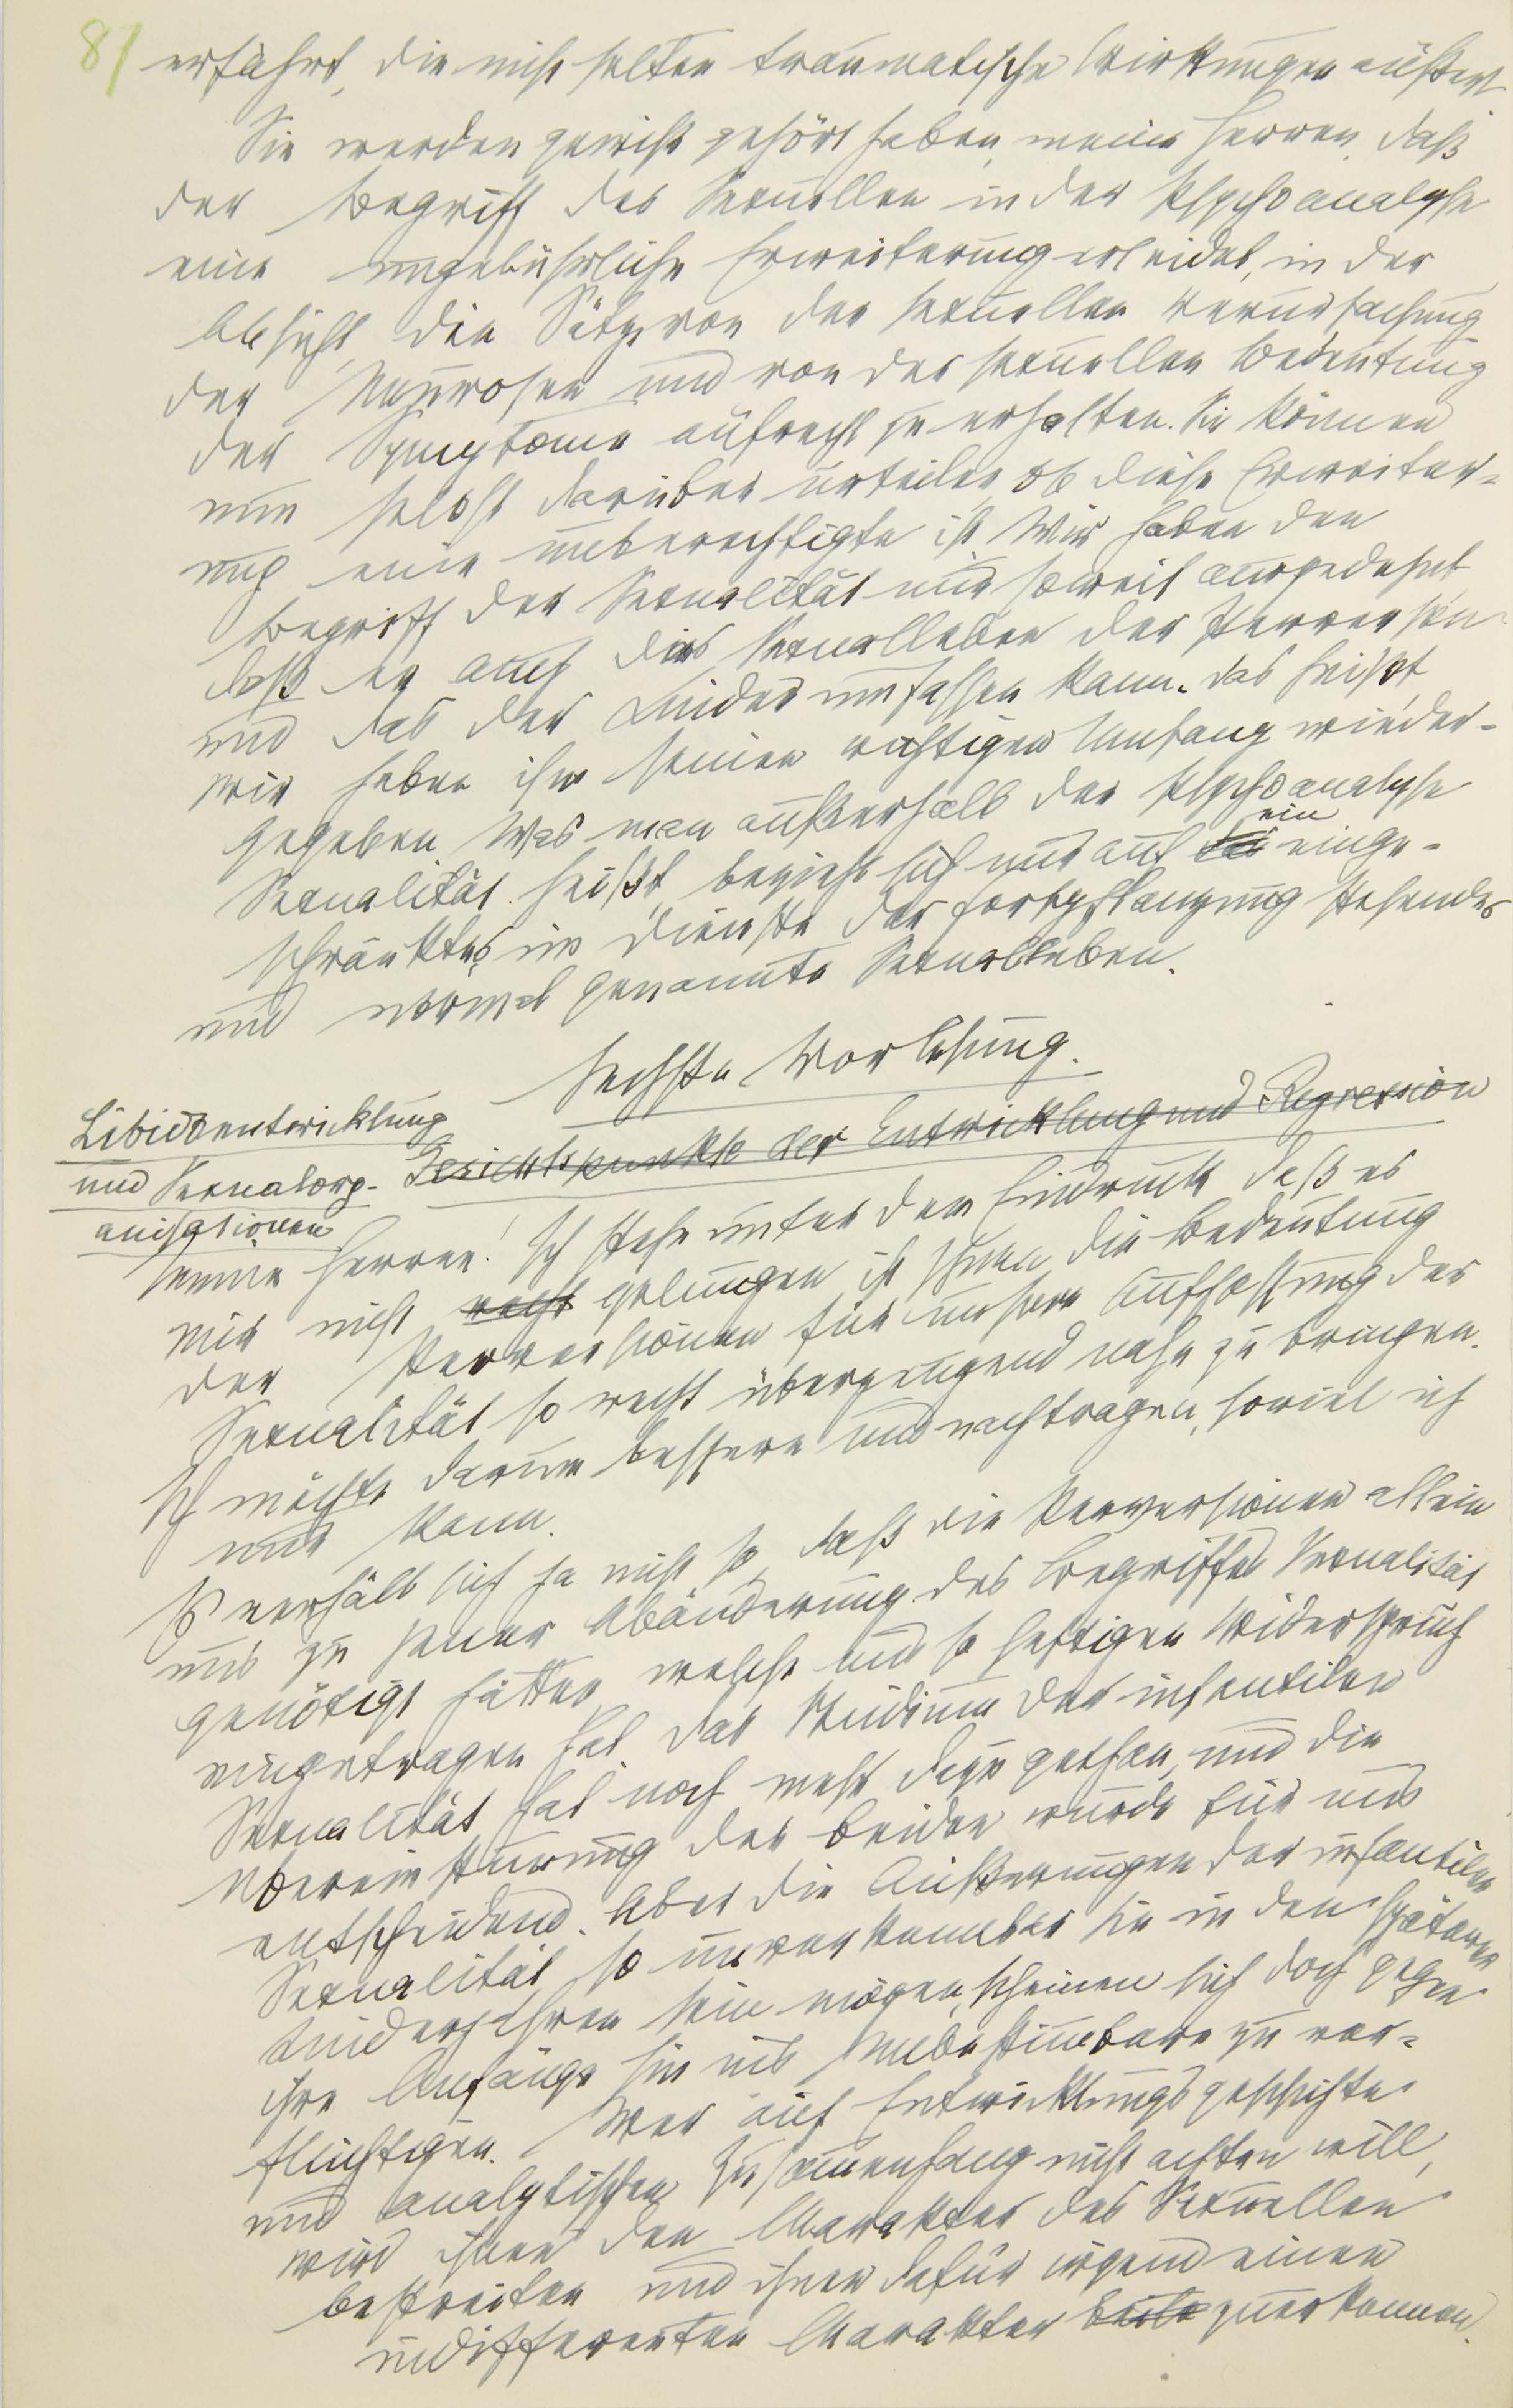 81 erfährt, die nicht selten traumatische Wirkungen äußert
Sie werden gewiß gehört haben, meine Herren, daß
der Begriff des Sexuellen in der Psychoanalyse
eine ungebührliche Erweiterung erleidet, in der
Absicht, die Sätze von der sexuellen Verursachung
der Neurosen und von der sexuellen Bedeutung
der Symptome aufrecht zu erhalten. Sie können
nun selbst darüber urteilen, ob diese Erweiter-
ung eine unberechtigte ist. Wir haben den
Begriff der Sexualität nur soweit ausgedehnt
daß er auch das Sexualleben der Perversen
und das der Kinder umfassen kann. das heißt,
wir haben ihm seinen richtigen Umfang wieder-
gegeben Was man außerhalb der Psychoanalyse
Sexualität heißt, bezieht sich nur auf ein einge-
schränktes, im Dienste der Fortpflanzung stehendes
und normal genannte Sexualleben.
Sechste Vorlesung.
Libidoentwicklung
und Sexualorg-
anisationen
Gesichtspunkte der Entwicklung und Regression
Meine Herren! Ich stehe unter dem Eindruck daß es
mir nicht recht gelungen ist Ihnen die Bedeutung
der Perversionen für unsere Auffassung der
Sexualität so recht überzeugend nahe zu bringen.
Ich möchte darum bessern und nachtragen, soviel ich
nur kann.
Es verhält sich ja nicht so, daß die Perversionen allein
uns zu jener Abänderung des Begriffes Sexualität
genötigt hätten, welche uns so heftigen Widerspruch
eingetragen hat. Das Studium der infantilen
Sexualität hat noch mehr dazu gethan, und die
Übereinstimmung der beiden wurde für uns
entscheidend. Aber die Äußerungen der infantilen
Sexualität, so unverkennbar sie in den späteren
Kinderjahren sein mögen, scheinen sich doch gegen
ihre Anfänge hin ins Unbestimmbare zu ver-
flüchtigen. Wer auf Entwicklungsgeschichte
und analytischen Zusammenhang nicht achten will,
wird ihnen den Charakter des Sexuellen
bestreiten und ihnen dafür irgend einen
indifferenten Charakter zuerkennen.